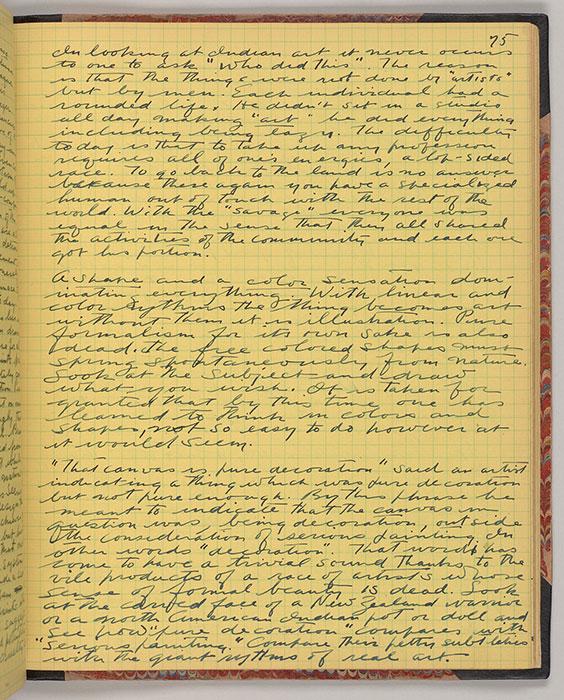 75
In looking at Indian art it never occurs
to one to ask "who did this". The reason
is that the things were not done by "artists"
but by men. Each individual had a
rounded life. He didn't sit in a studio
all day making "art" he did everything
including being lazy. The difficulty
today is that to take up any profession
requires all of one's energies, a lop-sided
race. To go back to the land is no answer
because there again you have a specialized
human out of touch with the rest of the
world. With the "savage" everyone was
equal in the sense that they all shared
the activities of the community and each one
got his portion.
A shape and a color sensation dom-
inating everything. With linear and
color rhythms the thing becomes art
without them it is illustration. Pure
formalism for its own sake is also
dead. The free colored shapes must
spring spontaneously from nature.
Look at the subject and draw
what you wish. It is taken for
granted that by this time one has
learned to think in colors and
shapes, not so easy to do however at
it would seem.
"That canvas is pure decoration" said an artist
indicating a thing which was pure decoration
but not pure enough. By this phrase he
meant to indicate that the canvas in
question was being decoration, outside
the consideration of serious painting. In
other words "decoration". That word has
come to have a trivial sound thanks to the
vile products of a race of artists whose
sense of formal beauty is dead. Look
at the carved face of a New Zealand warrior
or a north American Indian pot or doll and
see how "pure decoration" compares with
"serious painting." Compare their petty subtleties
with the giant rythms of real art.